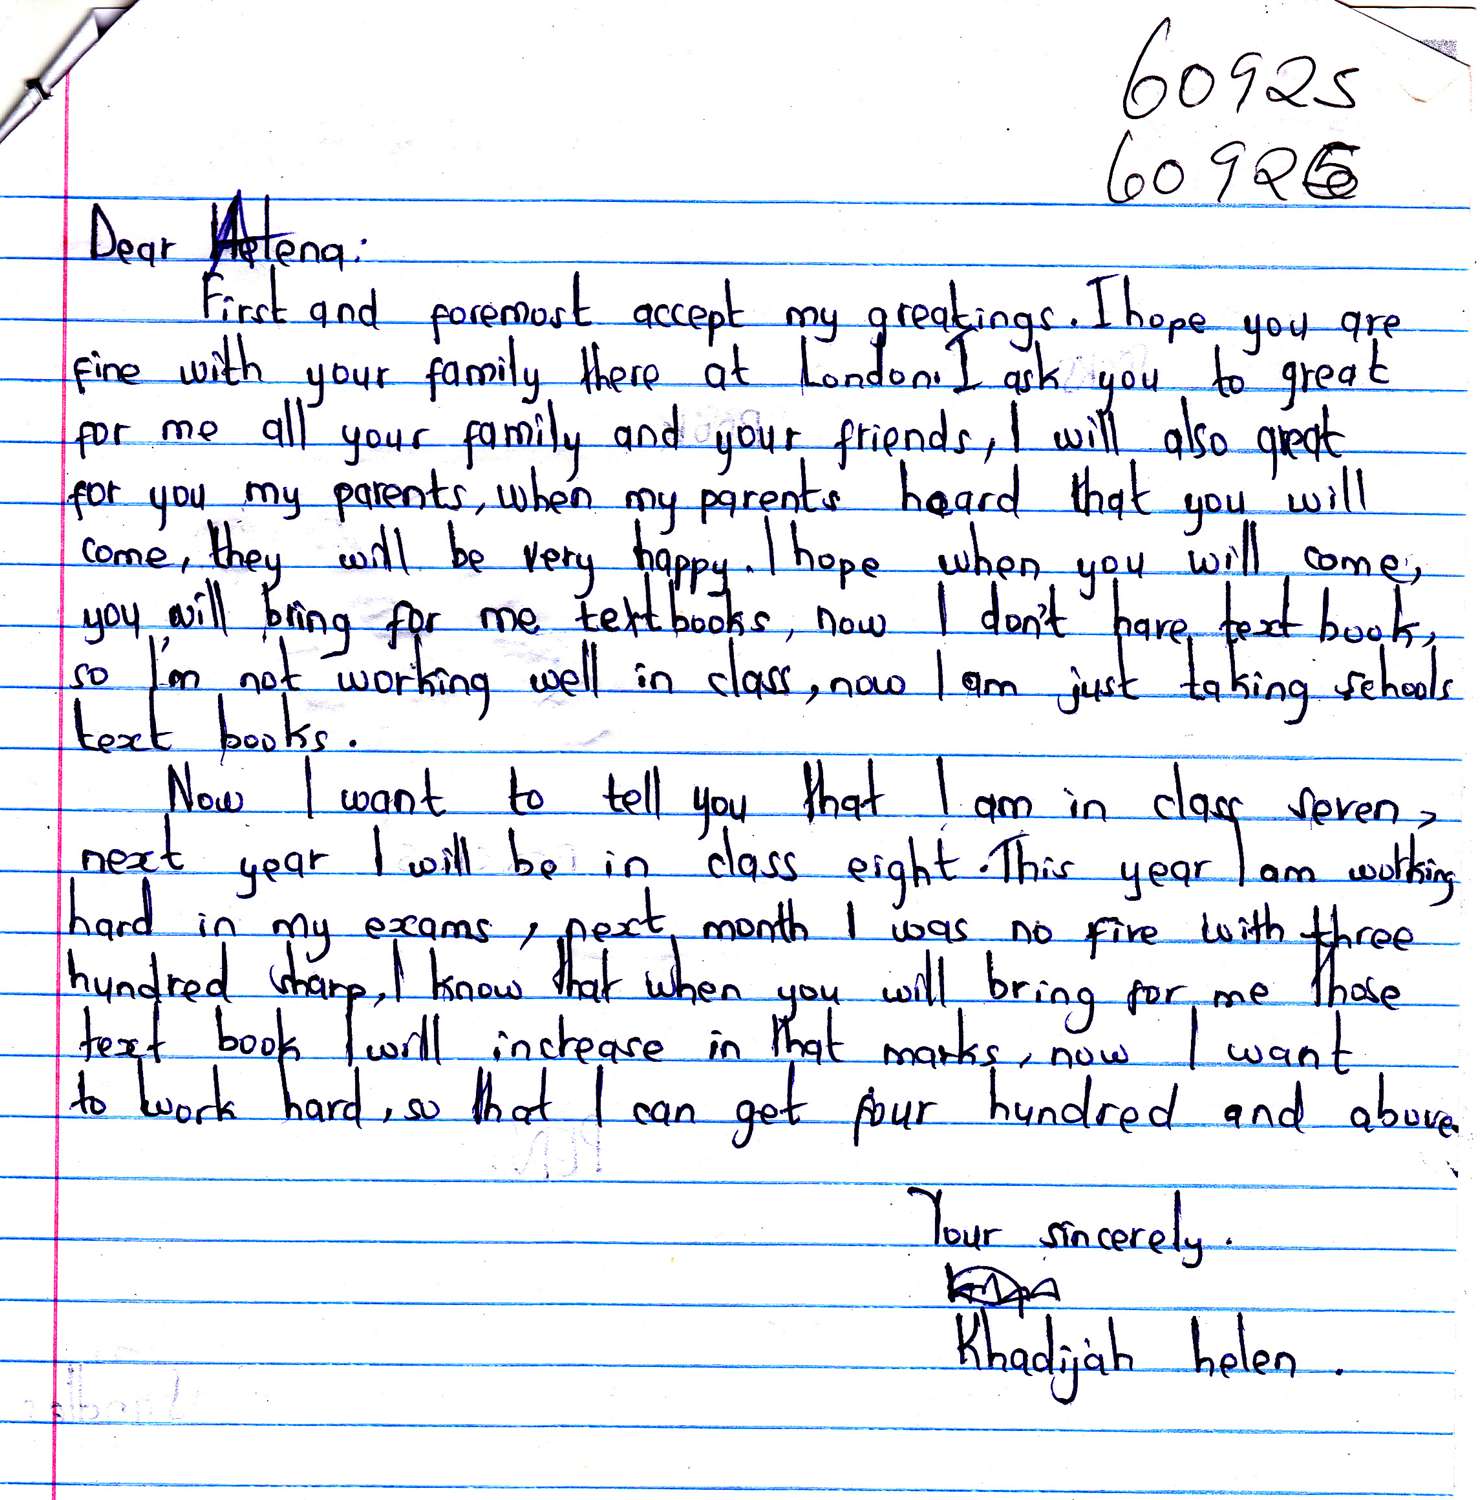 60925
60926
Dear Helena:
First and foremost accept my greatings. I hope you are
fine with your family there at London. I ask you to great
for me all your family and your friends, I will also great
for you my parents, when my parents heard that you will
come, they will be very happy. I hope when you will come,
you will bring for me textbooks, now I don't have text book,
so I'm not working well in class, now I am just taking schools
text books.
Now I want to tell you that I am in class seven,
next year I will be in class eight. This year I am working
hard in my exams, next month I was no five with three
hundred sharp, I know that when you will bring for me those
text book I will increase in that marks, now I want
to work hard, so that I can get four hundred and above.
Your sincerely.
Khadijah helen.